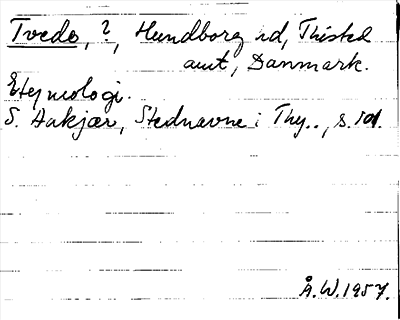 Tvede, ?, Hundborg sd, Thisted
amt, Danmark.
Etymologi.
S. Aakjær, Stednavne i Thy.., s. 101.
Å.W. 1957.